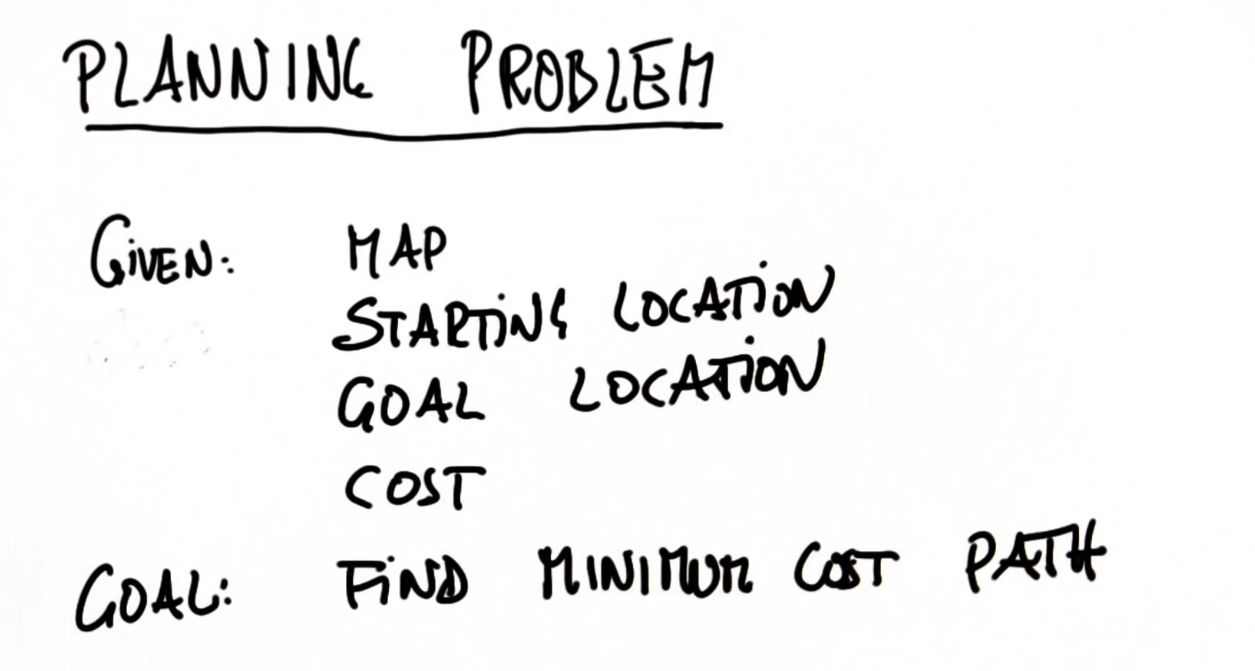 PLANNING PROBLEM
GiVEN: MAP
STARTiNG LOCATiON
GOAL LOCATiON
COST
GOAL: FiND MINIMUM COST PATH